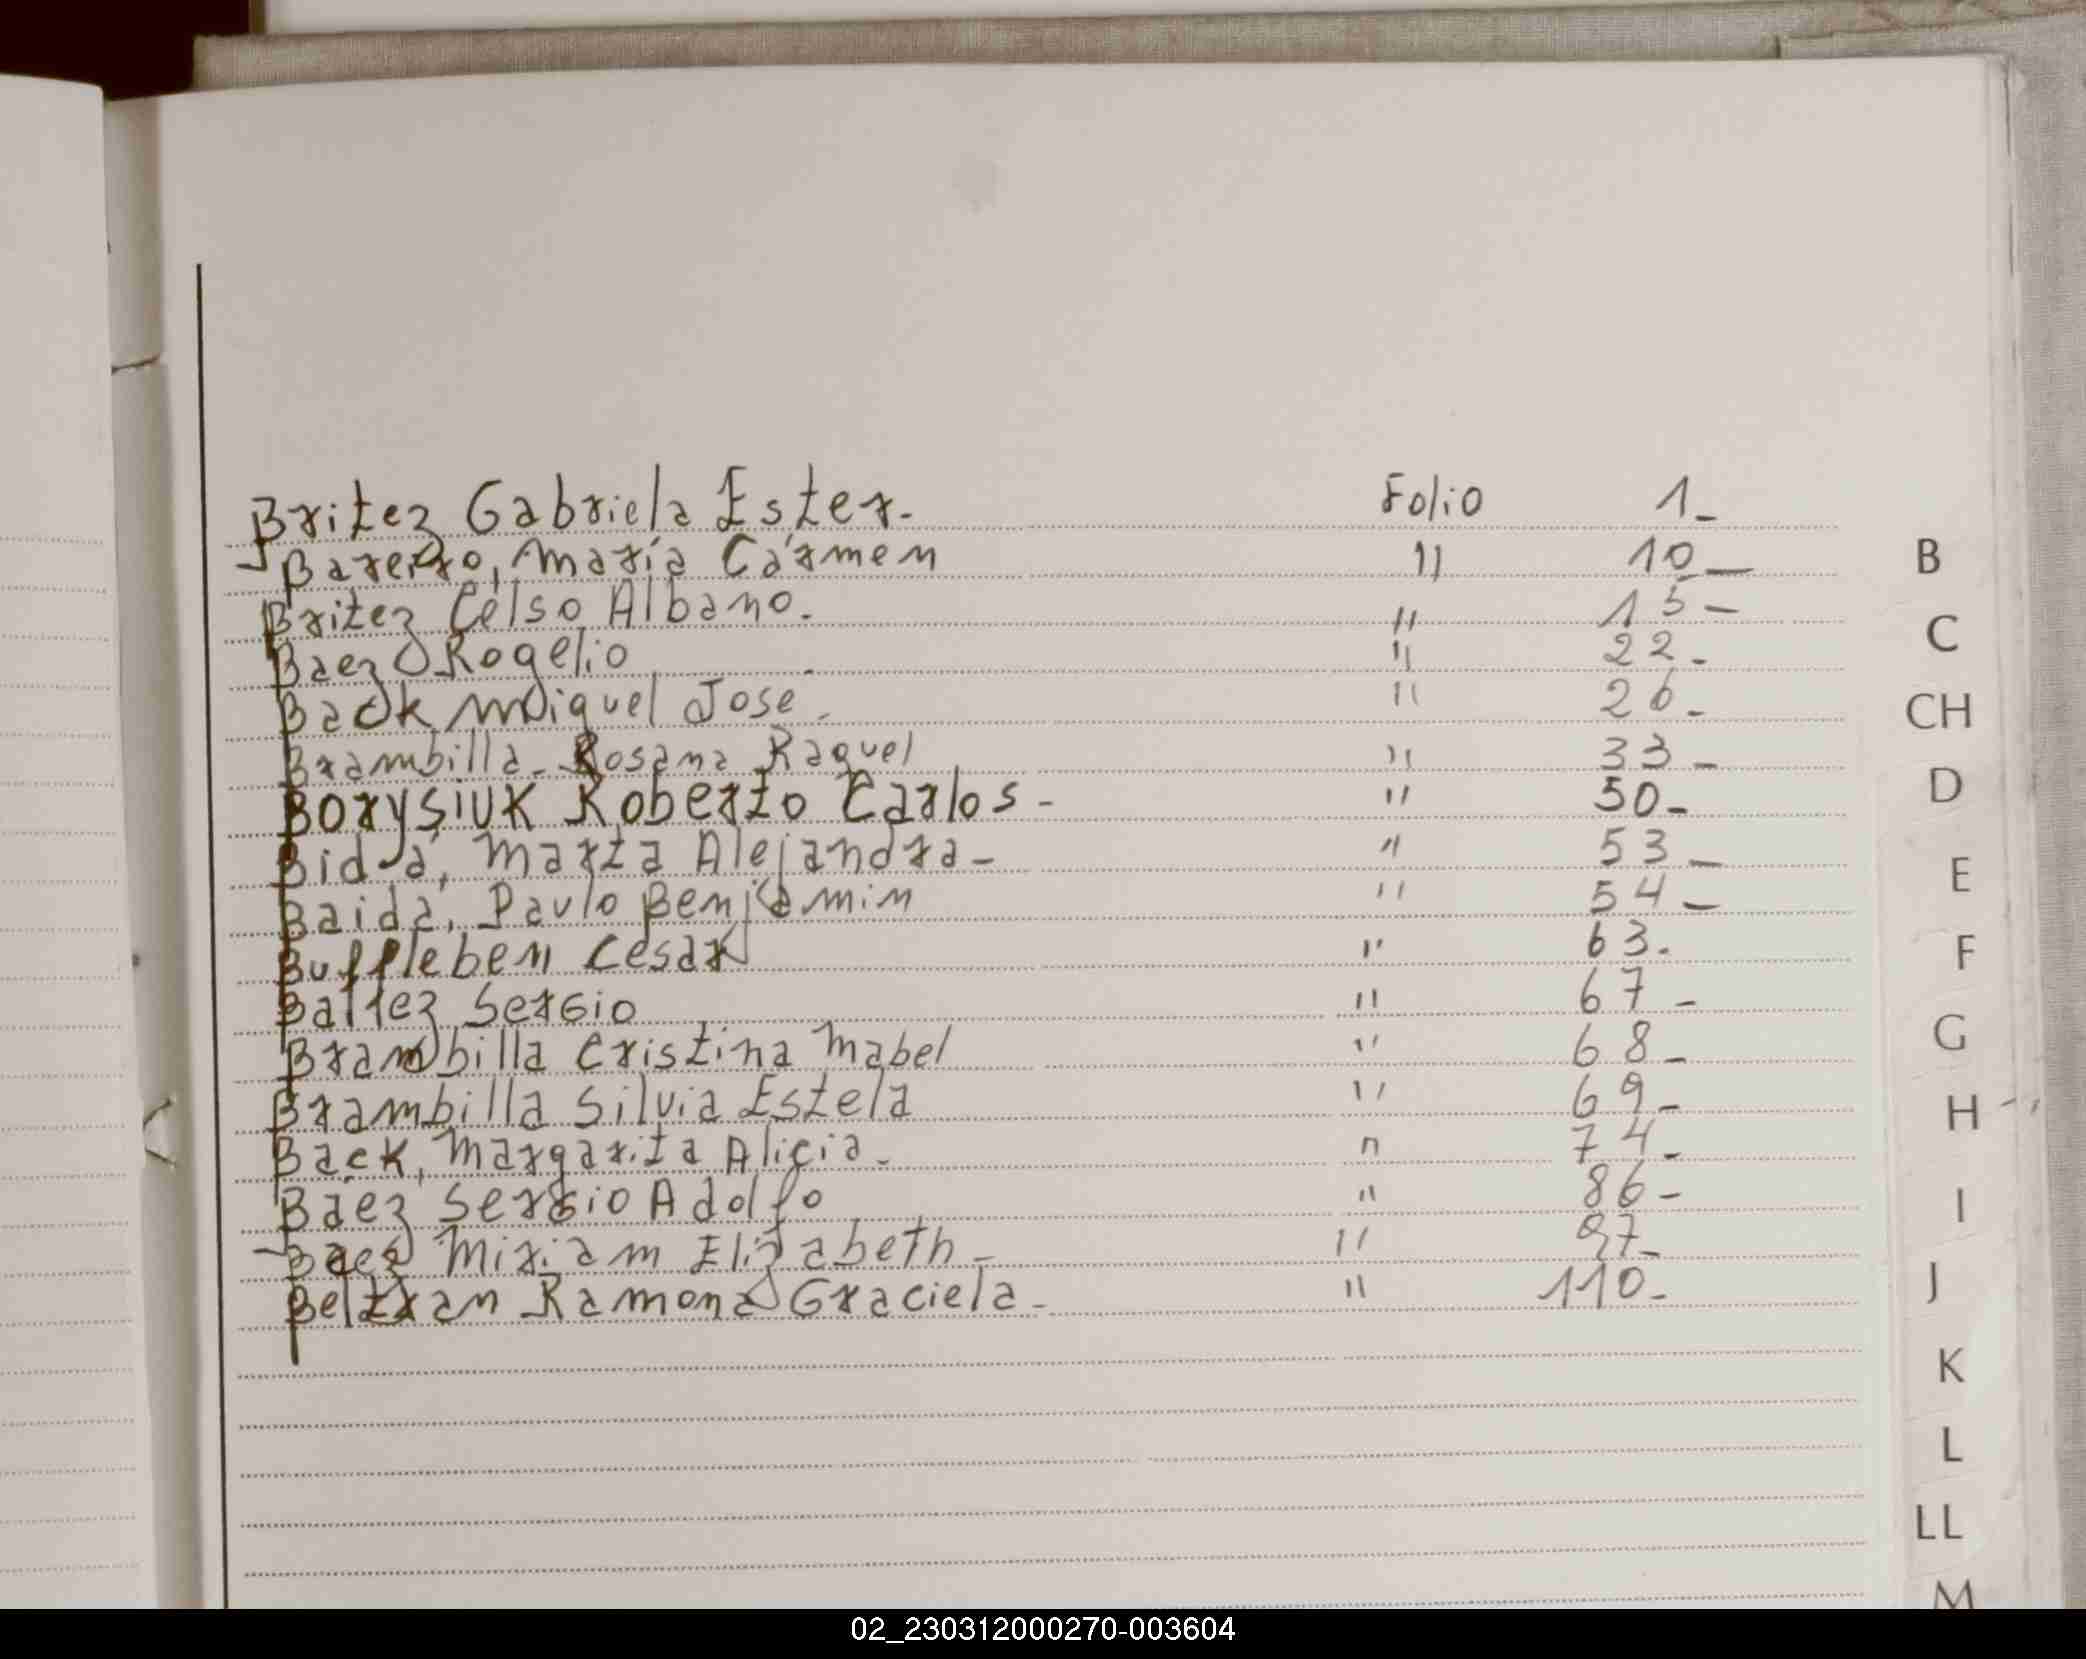 Britez Gabriela Ester. Folio 1_
Bareiro, Maria Cármen " 10_
Britez Célso Albano. " 15-
Baez Rogelio " 22-
Back Miguel Jose. " 26-
Brambilla Rosana Raquel " 33-
Borysiuk Roberto Carlos- " 50-
Bida, Marta Alejandra- " 53-
Baida, Paulo Benjamin " 54-
Buffleben Cesar " 63.
Baltez Sergio " 67-
Brambilla Cristina Mabel " 68-
Brambilla Silvia Estela " 69-
Back, Margarita Alicia. " 74-
Báez Sergio Adolfo " 86-
Baez Miriam Elizabeth- " 97-
Beltran Ramona Graciela- " 110-
B
C
CH
D
E
F
G
H
I
J
K
L
LL
M
02_230312000270-003604